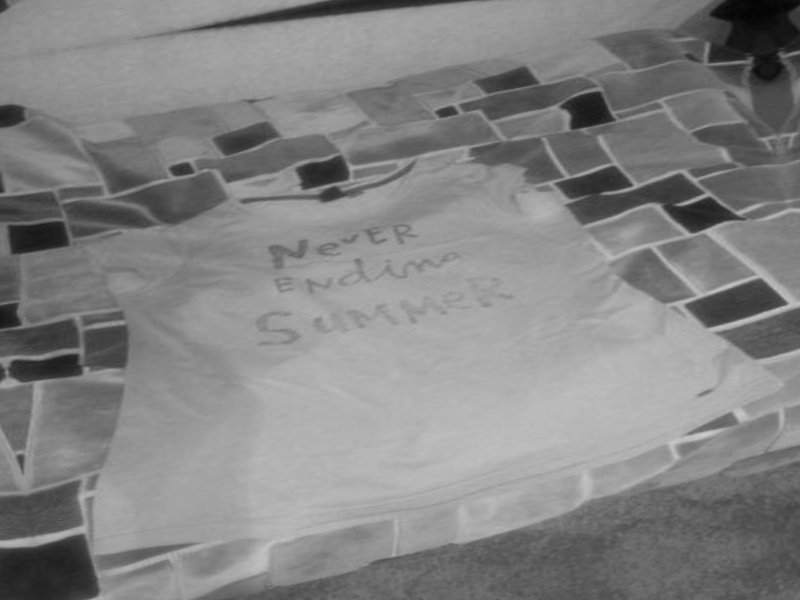 NeVER
ENdiNG
SUMMeR